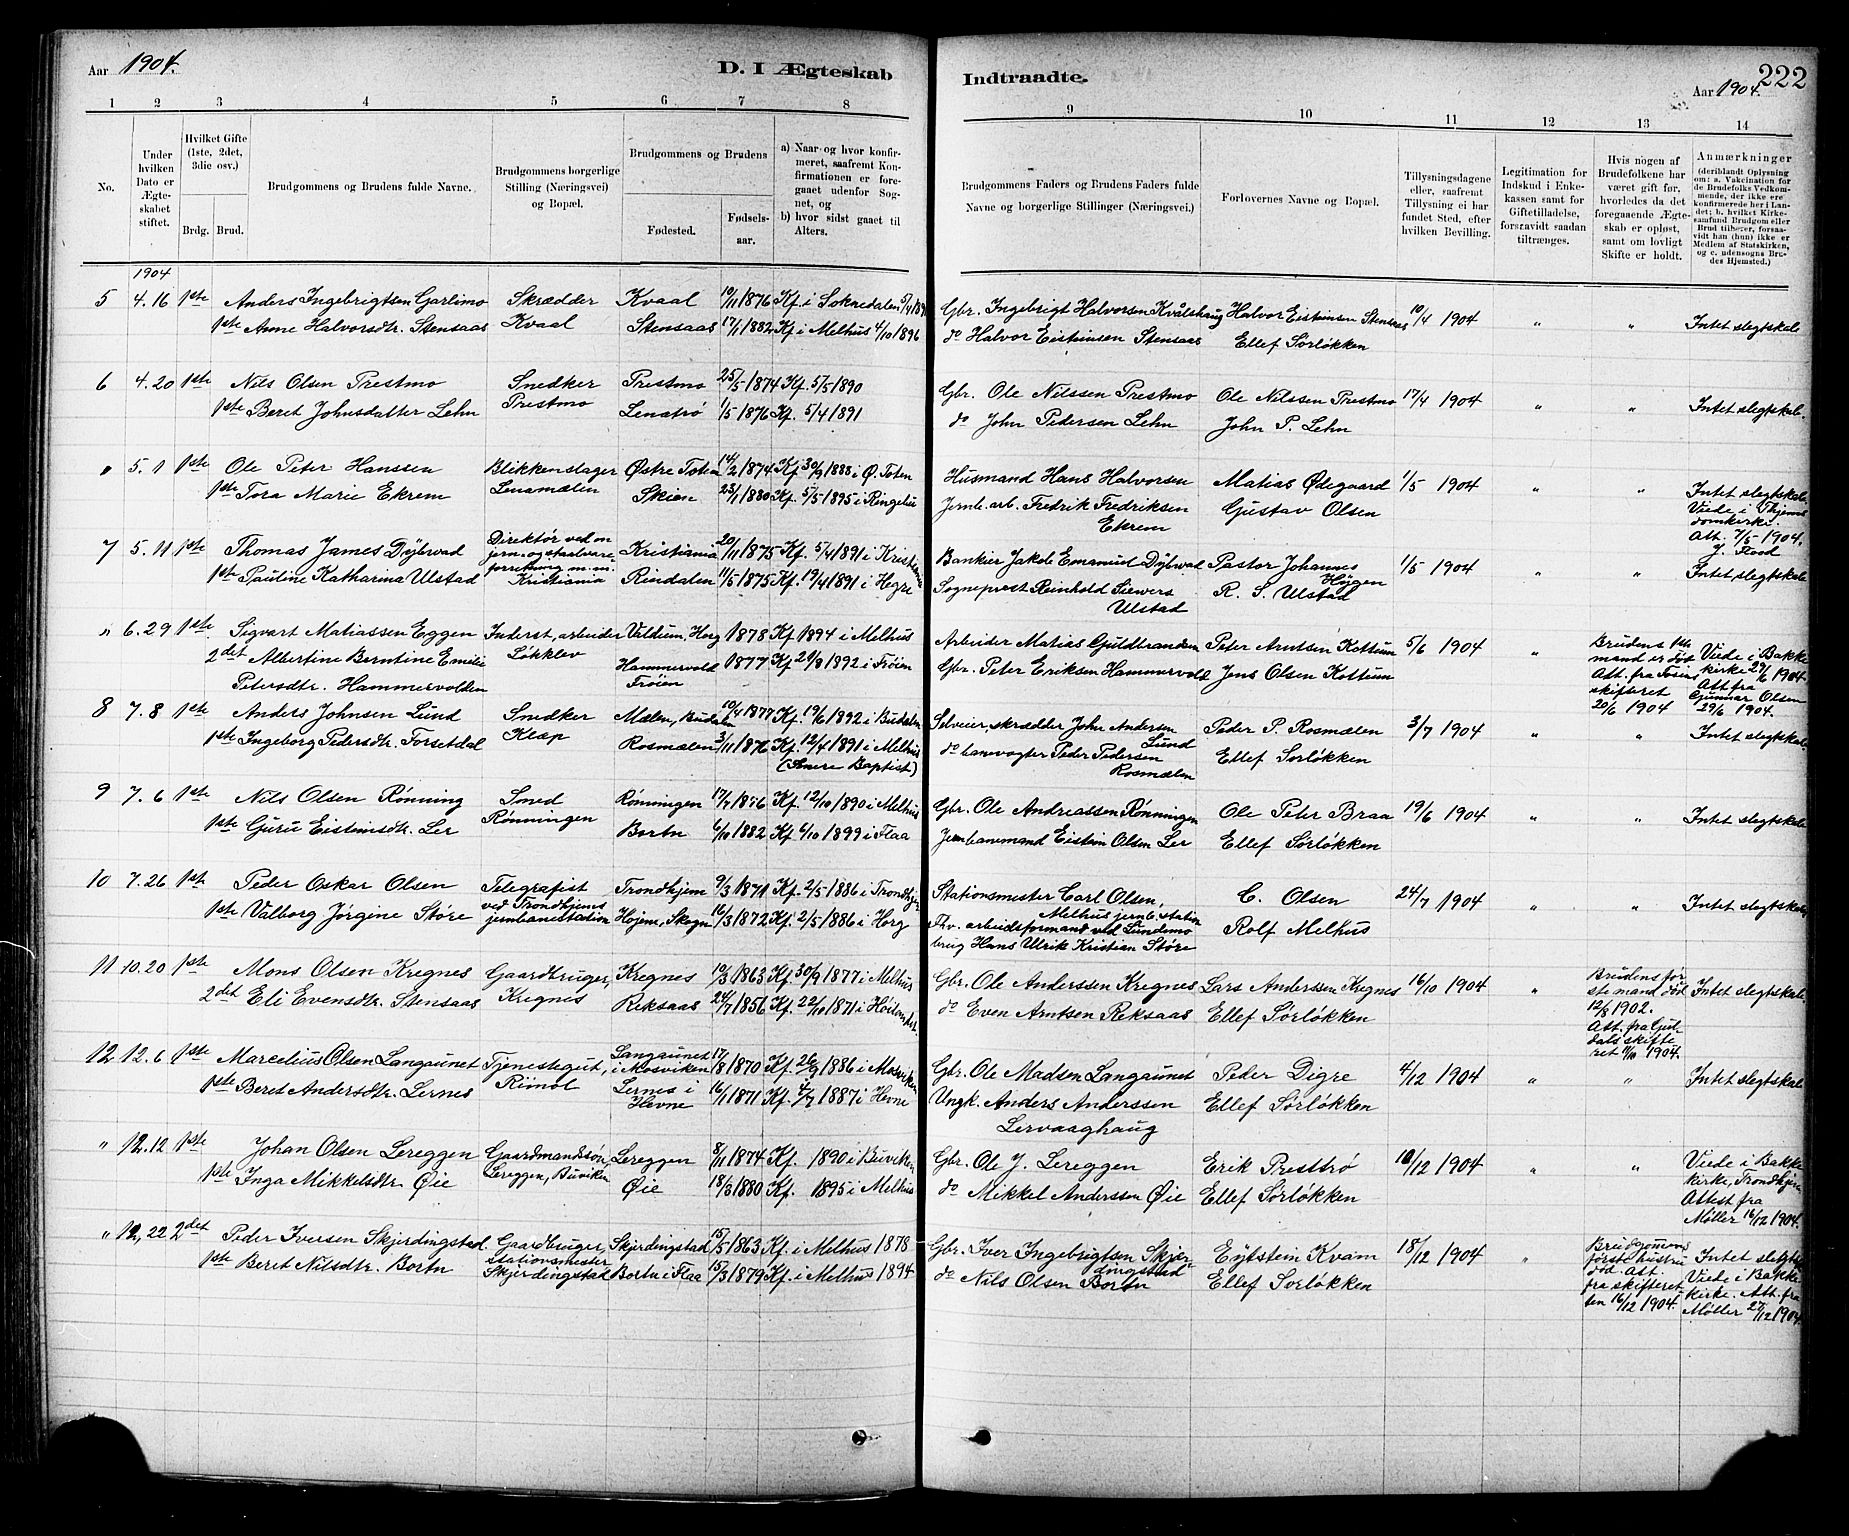 Aar 1904.
D. I Ægteskab
Indtraadte.
222
Aar 1904.
1 2 3 4 5 6 7 8 9 10 11 12 13 14
No.
Under hvilken Dato er Ægteskabet stiftet.
Hvilket Gifte (1ste, 2det, 3die osv.)
Brdg. Brud.
Brudgommens og Brudens fulde Navne.
Brudgommens borgerlige Stilling (Næringsvei) og Bopæl.
Brudgommens og Brudens
Fødested.
Fødselsaar.
a) Naar og hvor konfirmeret, saafremt Konfirmationen er foregaaet udenfor Sognet, og
b) hvor sidst gaaet til Alters.
Brudgommens Faders og Brudens Faders fulde Navne og borgerlige Stillinger (Næringsvei.)
Forlovernes Navne og Bopæl.
Tillysningsdagene eller, saafremt Tillysning ei har fundet Sted, efter hvilken Bevilling.
Legitimation for Indskud i Enkekassen samt for Giftetilladelse, forsaavidt saadan tiltrænges.
Hvis nogen af Brudefolkene har været gift før, hvorledes da det foregaaende Ægteskab er opløst, samt om lovligt Skifte er holdt.
Anmærkninger (deriblandt Oplysning om: a. Vakcination for de Brudefolks Vedkommende, der ikke ere konfirmerede her i Landet; b. hvilket Kirkesamfund Brudgom eller Brud tilhører, forsaavidt han (hun) ikke er Medlem af Statskirken, og c. udensogns Brudes Hjemsted.)
1904
5 4.16 1ste Anders Ingebrigtsen Garlimo Skrædder Kvaal 10/11 1876 Kf. i Soknedalen Gbr. Ingebrigt Halvorsen Kvålshaug Halvor Eistensen Stensaas 10/4 1904 " " Intet slegtskab
1ste Anne Halvorsdtr. Stensaas Kvaal Stensaas 17/1 1882 Kf. i Melhus 4/10 1896 do Halvor Eistensen Stensaas Ellef Sørløkken
6 4.20 1ste Nils Olsen Prestmo Snedker Prestmo 25/5 1874 Kf. 5/5 1890 Gbr. Ole Nilssen Prestmo Ole Nilssen Prestmo 17/4 1904 " " Intet slegtskab.
1ste Beret Johnsdatter Lehn Prestmo Lenatrø 1/5 1876 Kf. 5/4 1891 do John Pedersen Lehn John P. Lehn
" 5.1 1ste Ole Peter Hanssen Blikkenslager Østre Toten 14/2 1874 Kf. 30/9 1888 i Ø. Toten Husmand Hans Halvorsen Matias Ødegaard 1/5 1904 " " Intet slegtskab
1ste Tora Marie Ekrem Lenamælen Skien 23/1 1880 Kf. 5/5 1895 i Ringebu Jernb. arb. Fredrik Fredriksen Ekrem Gustav Olsen Viede i Thjems domkirke. Att. 7/5 1904. J. Flood
7 5.11 1ste Thomas James Dybwad Direktør ved en jern- og staalvareforretning m. m. Kristiania Kristiania 20/11 1875 Kf. 5/4 1891 i Kristiania Bankier Jakob Emanuel Dybwad Pastor Johannes Høygen 1/5 1904 " " Intet slegtskab
1ste Pauline Katharina Ulstad Rindalen 11/5 1875 Kf. 19/4 1891 i Hegre Sogneprest Reinhold Siewers Ulstad R. S. Ulstad
" 6.29 1ste Sigvart Matiassen Eggen Inderst, arbeider Valdum, Horg 1878 Kf. 1894 i Melhus Arbeider Matias Guldbrandsen Peter Arntsen Kottum 5/6 1904 " Brudens 1ste mand er død Att. fra Fosens skifteret 20/6 1904 Viede i Bakke kirke 27/6 1904. Att fra Gunnar Olsen 29/6 1904.
2det Albertine Berntine Emilie Petersdtr. Hammervolden Løkklev Hammervold Frøien 1877 Kf. 21/8 1892 i Frøien Gbr. Peter Eriksen Hammervold Jens Olsen Kottum
8 7.8 1ste Anders Johnsen Lund Snedker Mælen, Budalen 10/4 1877 Kf. 19/6 1892 i Budalen Selveier, skrædder John Andersen Lund Peder P. Rosmælen 3/7 1904 " " Intet slegtskab
1ste Ingeborg Pedersdtr. Forsetdal Klæp Rosmælen 3/11 1876 Kf. 12/4 1891 i Melhus do banevogter Peder Pedersen Rosmælen Ellef Sørløkken
9 7.6 1ste Nils Olsen Rønning Smed Rønningen 17/7 1876 Kf. 12/10 1890 i Melhus Gbr. Ole Andreassen Rønningen Ole Peter Braa 19/6 1904 " " Intet slegtskab
1ste Guru Eistensdtr. Ler Rønningen Bortn 6/10 1882 Kf. 6/10 1899 i Flaa Jernbanemand Eistein Olsen Ler Ellef Sørløkken
10 7.26 1ste Peder Oskar Olsen Telegrafist Trondhjem 9/3 1871 Kf. 2/5 1886 i Trondhjem Stationsmester Carl Olsen, Melhus jernb. station C. Olsen 24/7 1904 " " Intet slegtskab
1ste Valborg Jørgine Støre ved Trondhjems jernbanestation Hojem, Skogn 16/3 1872 Kf. 2/5 1886 i Horg Fhv. arbeidsformand ved Lundemo brug Hans Ulrik Kristian Støre Rolf Melhus
11 10.20 1ste Mons Olsen Kregnes Gaardbruger, Kregnes 10/3 1863 Kf. 30/9 1877 i Melhus Gbr. Ole Anderssen Kregnes Lars Anderssen Kregnes 16/10 1904 " Brudens første mand død 12/8 1902. Att. fra Guldals skifteret 11/10 1904. Intet slegtskab.
2det Eli Evensdtr. Stensaas Kregnes Reksaas 24/7 1856 Kf. 22/10 1871 i Høilandet do Even Arntsen Reksaas Ellef Sørløkken
12 12.6 1ste Marcelius Olsen Langaunet Tjenestegut, Langaunet i Mosviken 17/8 1870 Kf. 26/9 1886 i Mosviken Gbr. Ole Madsen Langaunet Peder Digre 4/12 1904 " " Intet slegtskab
1ste Beret Andersdtr. Lernes Rimol Lernes i Hevne 16/1 1871 Kf. 4/7 1887 i Hevne Ungk. Anders Anderssen Lervaaghaug Ellef Sørløkken
" 12.12 1ste Johan Olsen Lereggen Gaardmandssøn, Lereggen 8/11 1874 Kf. 1890 i Buviken Gbr. Ole J. Lereggen Erik Presttrø 10/12 1904 " " Viede i Bakke kirke, Trondhjem Attest fra Møller 16/12 1904.
1ste Inga Mikkelsdtr. Øie Lereggen, Buviken Øie 18/3 1880 Kf. 1895 i Melhus do Mikkel Anderssen Øie Ellef Sørløkken
" 12.22 2det Peder Iversen Skjerdingstad. Gaardbruger, Skjerdingstad 15/5 1863 Kf. i Melhus 1878 Gbr. Iver Ingebrigtsen Skjerdingstad Eystein Kvam 18/12 1904 " Brudgommens første hustru død. Att. fra skifteretten 16/12 1904. Intet slegtskab Viede i Bakke kirke. Att. fra Møller 27/12 1904.
1ste Beret Nilsdtr. Bortn Stationsmester Skjerdingstad Bortn i Flaa 15/3 1879 Kf. i Melhus 1894 do Nils Olsen Bortn Ellef Sørløkken